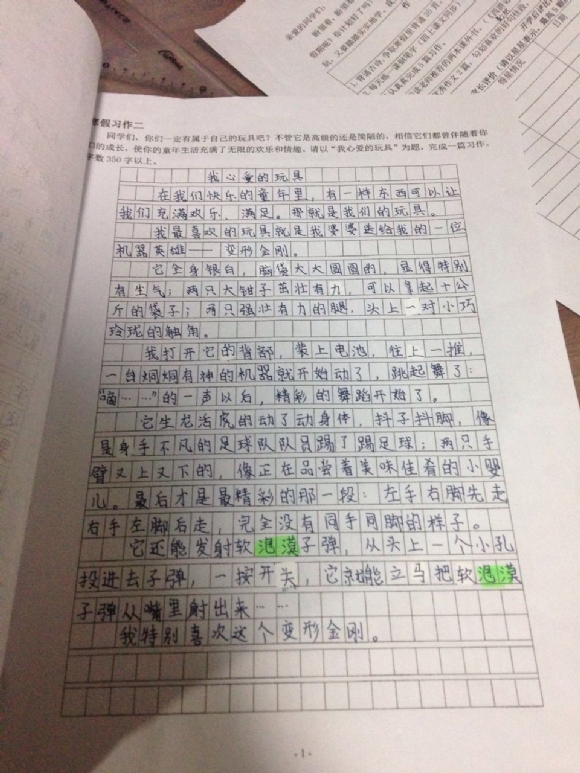 亲爱的同学们：
寒假习作二
同学们，你们一定有属于自己的玩具吧？不管它是高级的还是简陋的，相信它们都曾伴随着你
们的成长，使你的童年生活充满了无限的欢乐和情趣。请以“我心爱的玩具”为题，完成一篇习作。
字数350字以上。
我心爱的玩具
在我们快乐的童年里，有一样东西可以让
我们充满欢乐、满足。那就是我们的玩具。
我最喜欢的玩具就是我婆婆送给我的一位
机器英雄——变形金刚。
它全身银白，脑袋大大圆圆的，显得特别
有生气；两只大钳子茁壮有力，可以拿起十公
斤的袋子；两只强壮有力的腿，头上一对小巧
玲珑的触角。
我打开它的背部，装上电池，往上一推，
一台炯炯有神的机器就开始动了，跳起舞了：
“嘀……”的一声以后，精彩的舞蹈开始了。
它生龙活虎的动了动身体，抖子抖脚，像
是身手不凡的足球队队员踢了踢足球；两只手
臂又上又下的，像正在品尝着美味佳肴的小婴
儿。最后才是最精彩的那一段：左手右脚先走
右手左脚后走，完全没有同手同脚的样子。
它还能发射软泡漠子弹，从头上一个小孔
投进去子弹，一按开关，它就能立马把软泡漠
子弹从嘴里射出来……
我特别喜欢这个变形金刚。
·1·